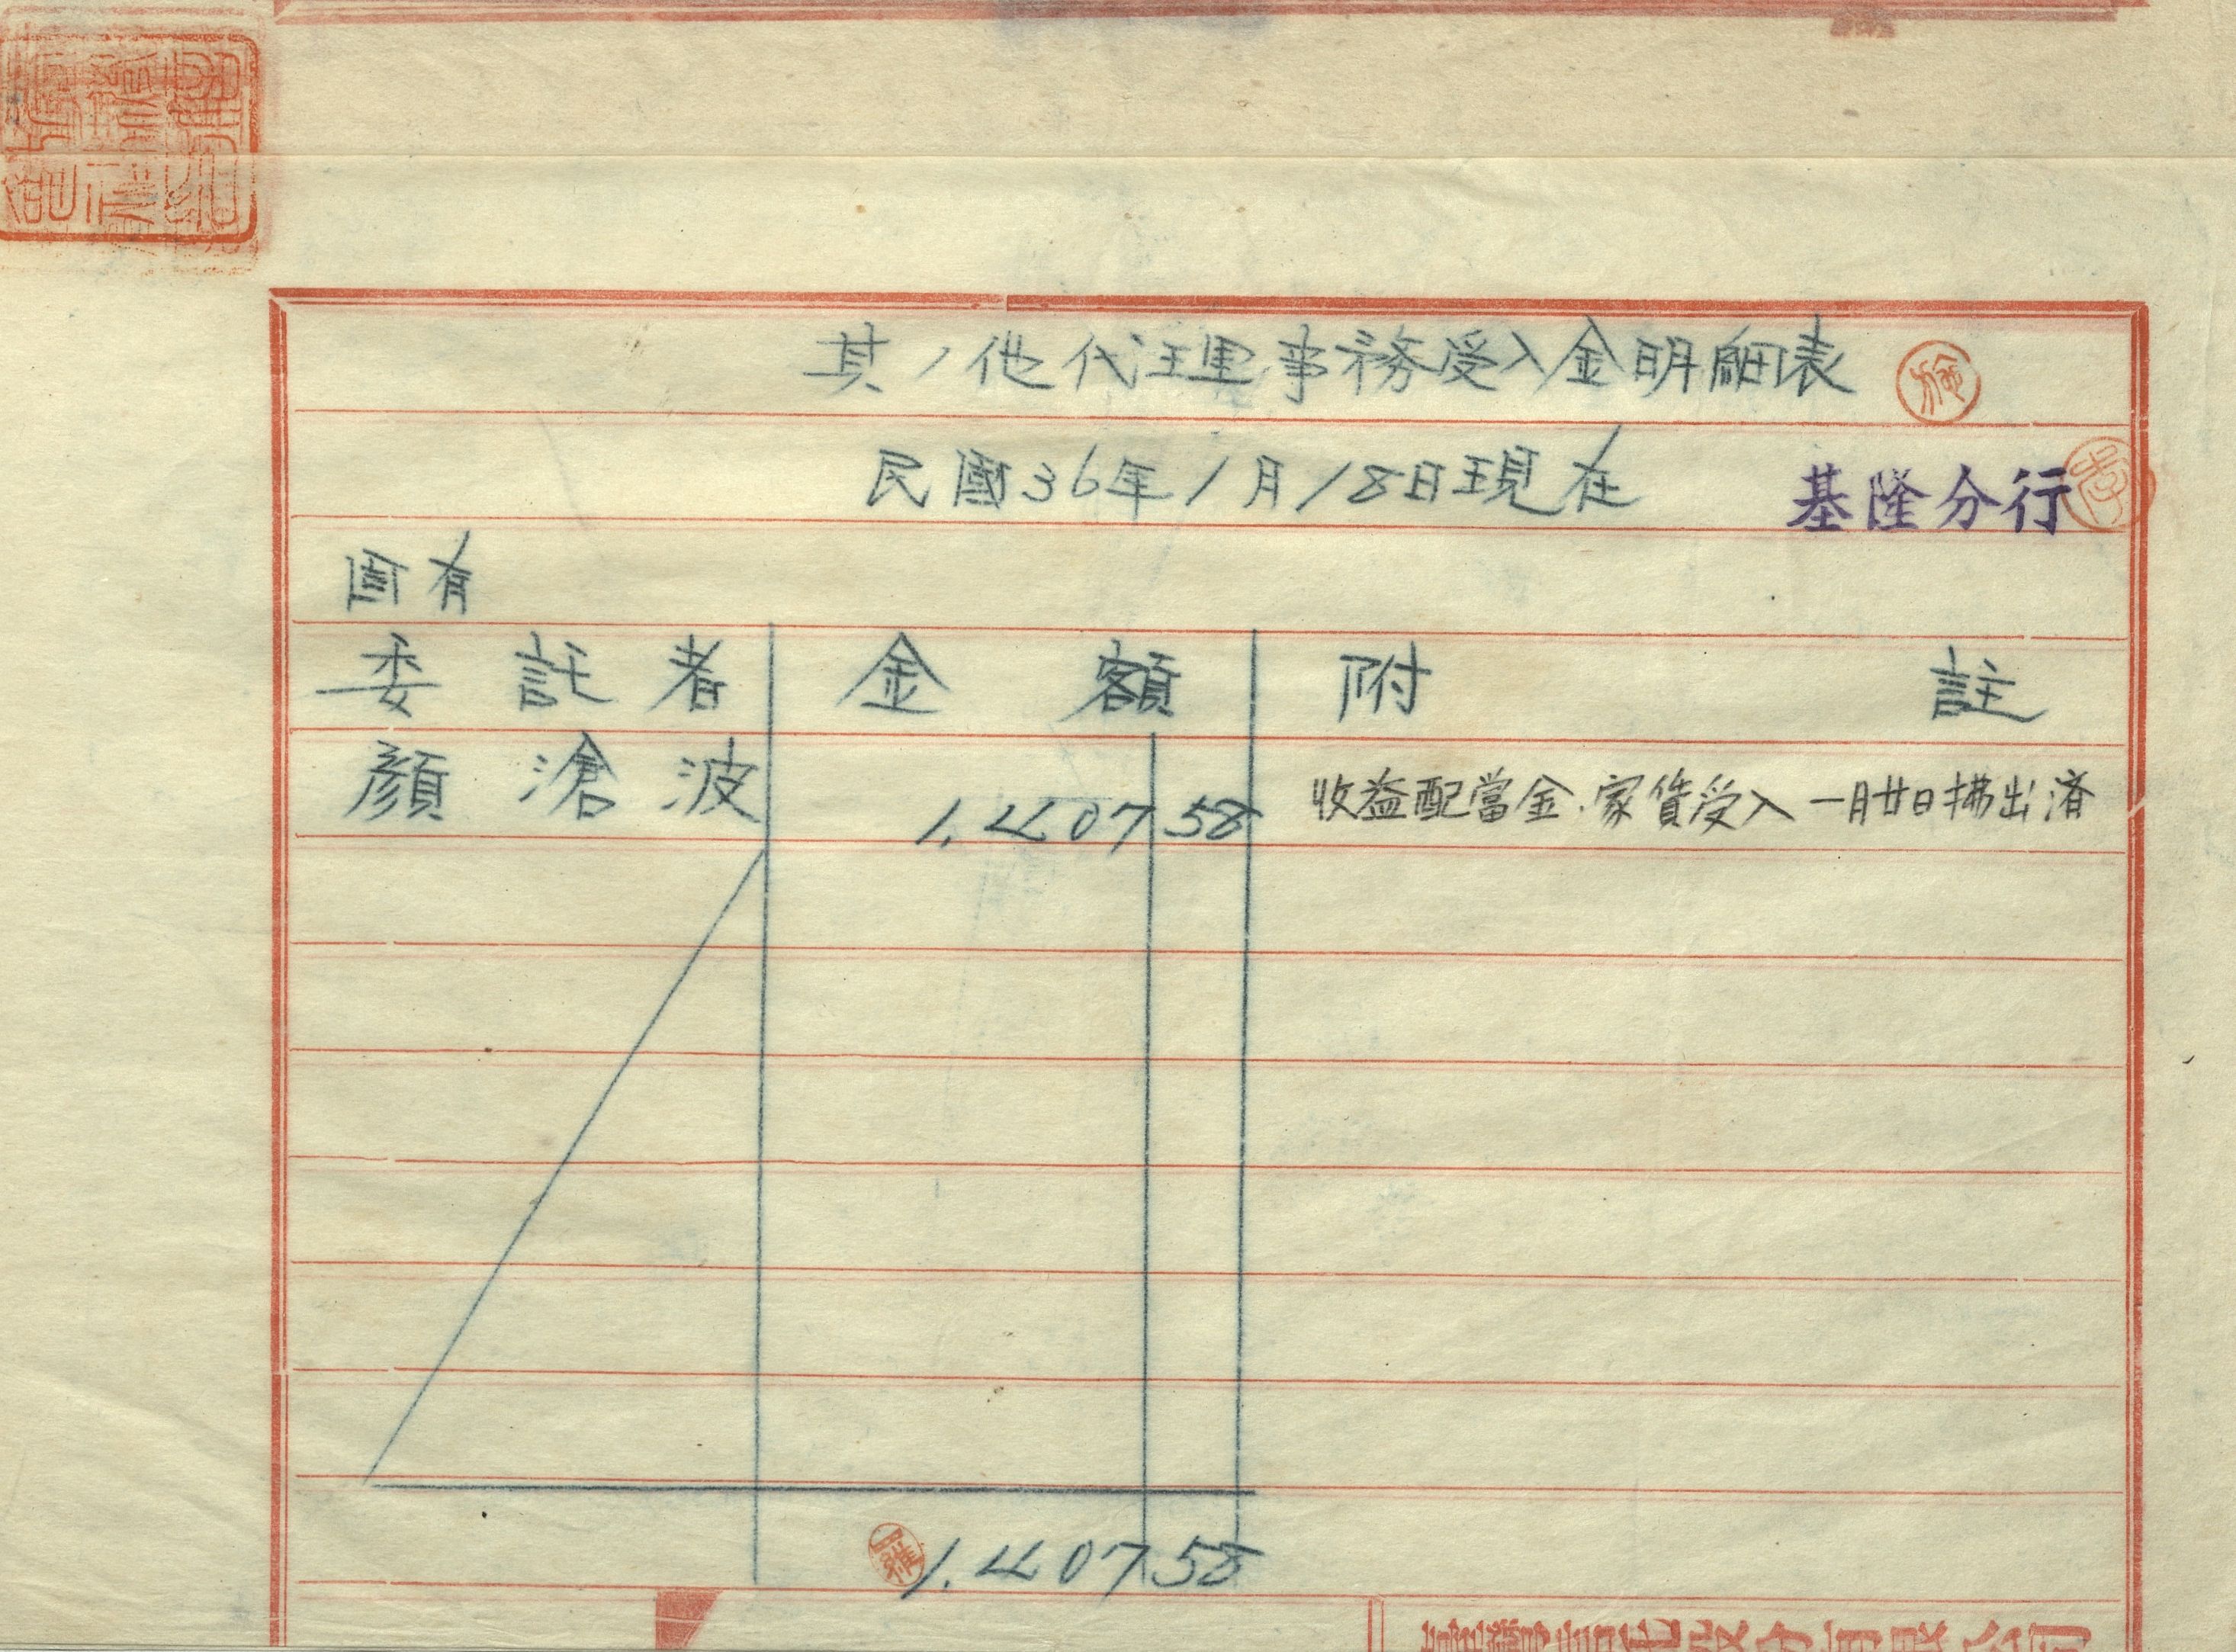 其ノ他代理事務受入金明細表
民國36年1月18日現在 基隆分行
固有
委託者 金額 附註
顏滄波 1.407 58 收益配當金.家賃受入 一月廿日拂出濟
羅 1.407 58